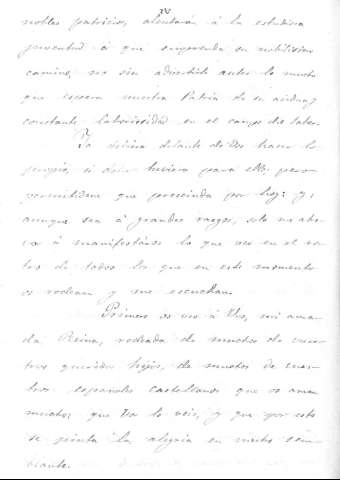 IV
nobles patricios, alentarán á la estudiosa
juventud á que emprenda su nobilísimo
camino, no sin advertirle antes lo mucho
que espera nuestra Patria de su asidua y
constante laboriosidad en el campo del saber.
Yo debiera delante de Vos hacer lo
propio, si dotes tuviera para ello; pero
permitidme que prescinda por hoy: y,
aunque sea á grandes rasgos, solo me abo-
á manifestaros lo que veo en el ros-
tro de todos los que en este momento
os rodean y me escuchan.
Primero os veo á Vos, mi ama-
da Reina, rodeada de muchos de vues-
tros queridos hijos, de muchos de nues-
tros españoles castellanos que os aman
mucho; que Vos lo veis, y que por esto
se pinta la alegria en vuestro sem-
blante.